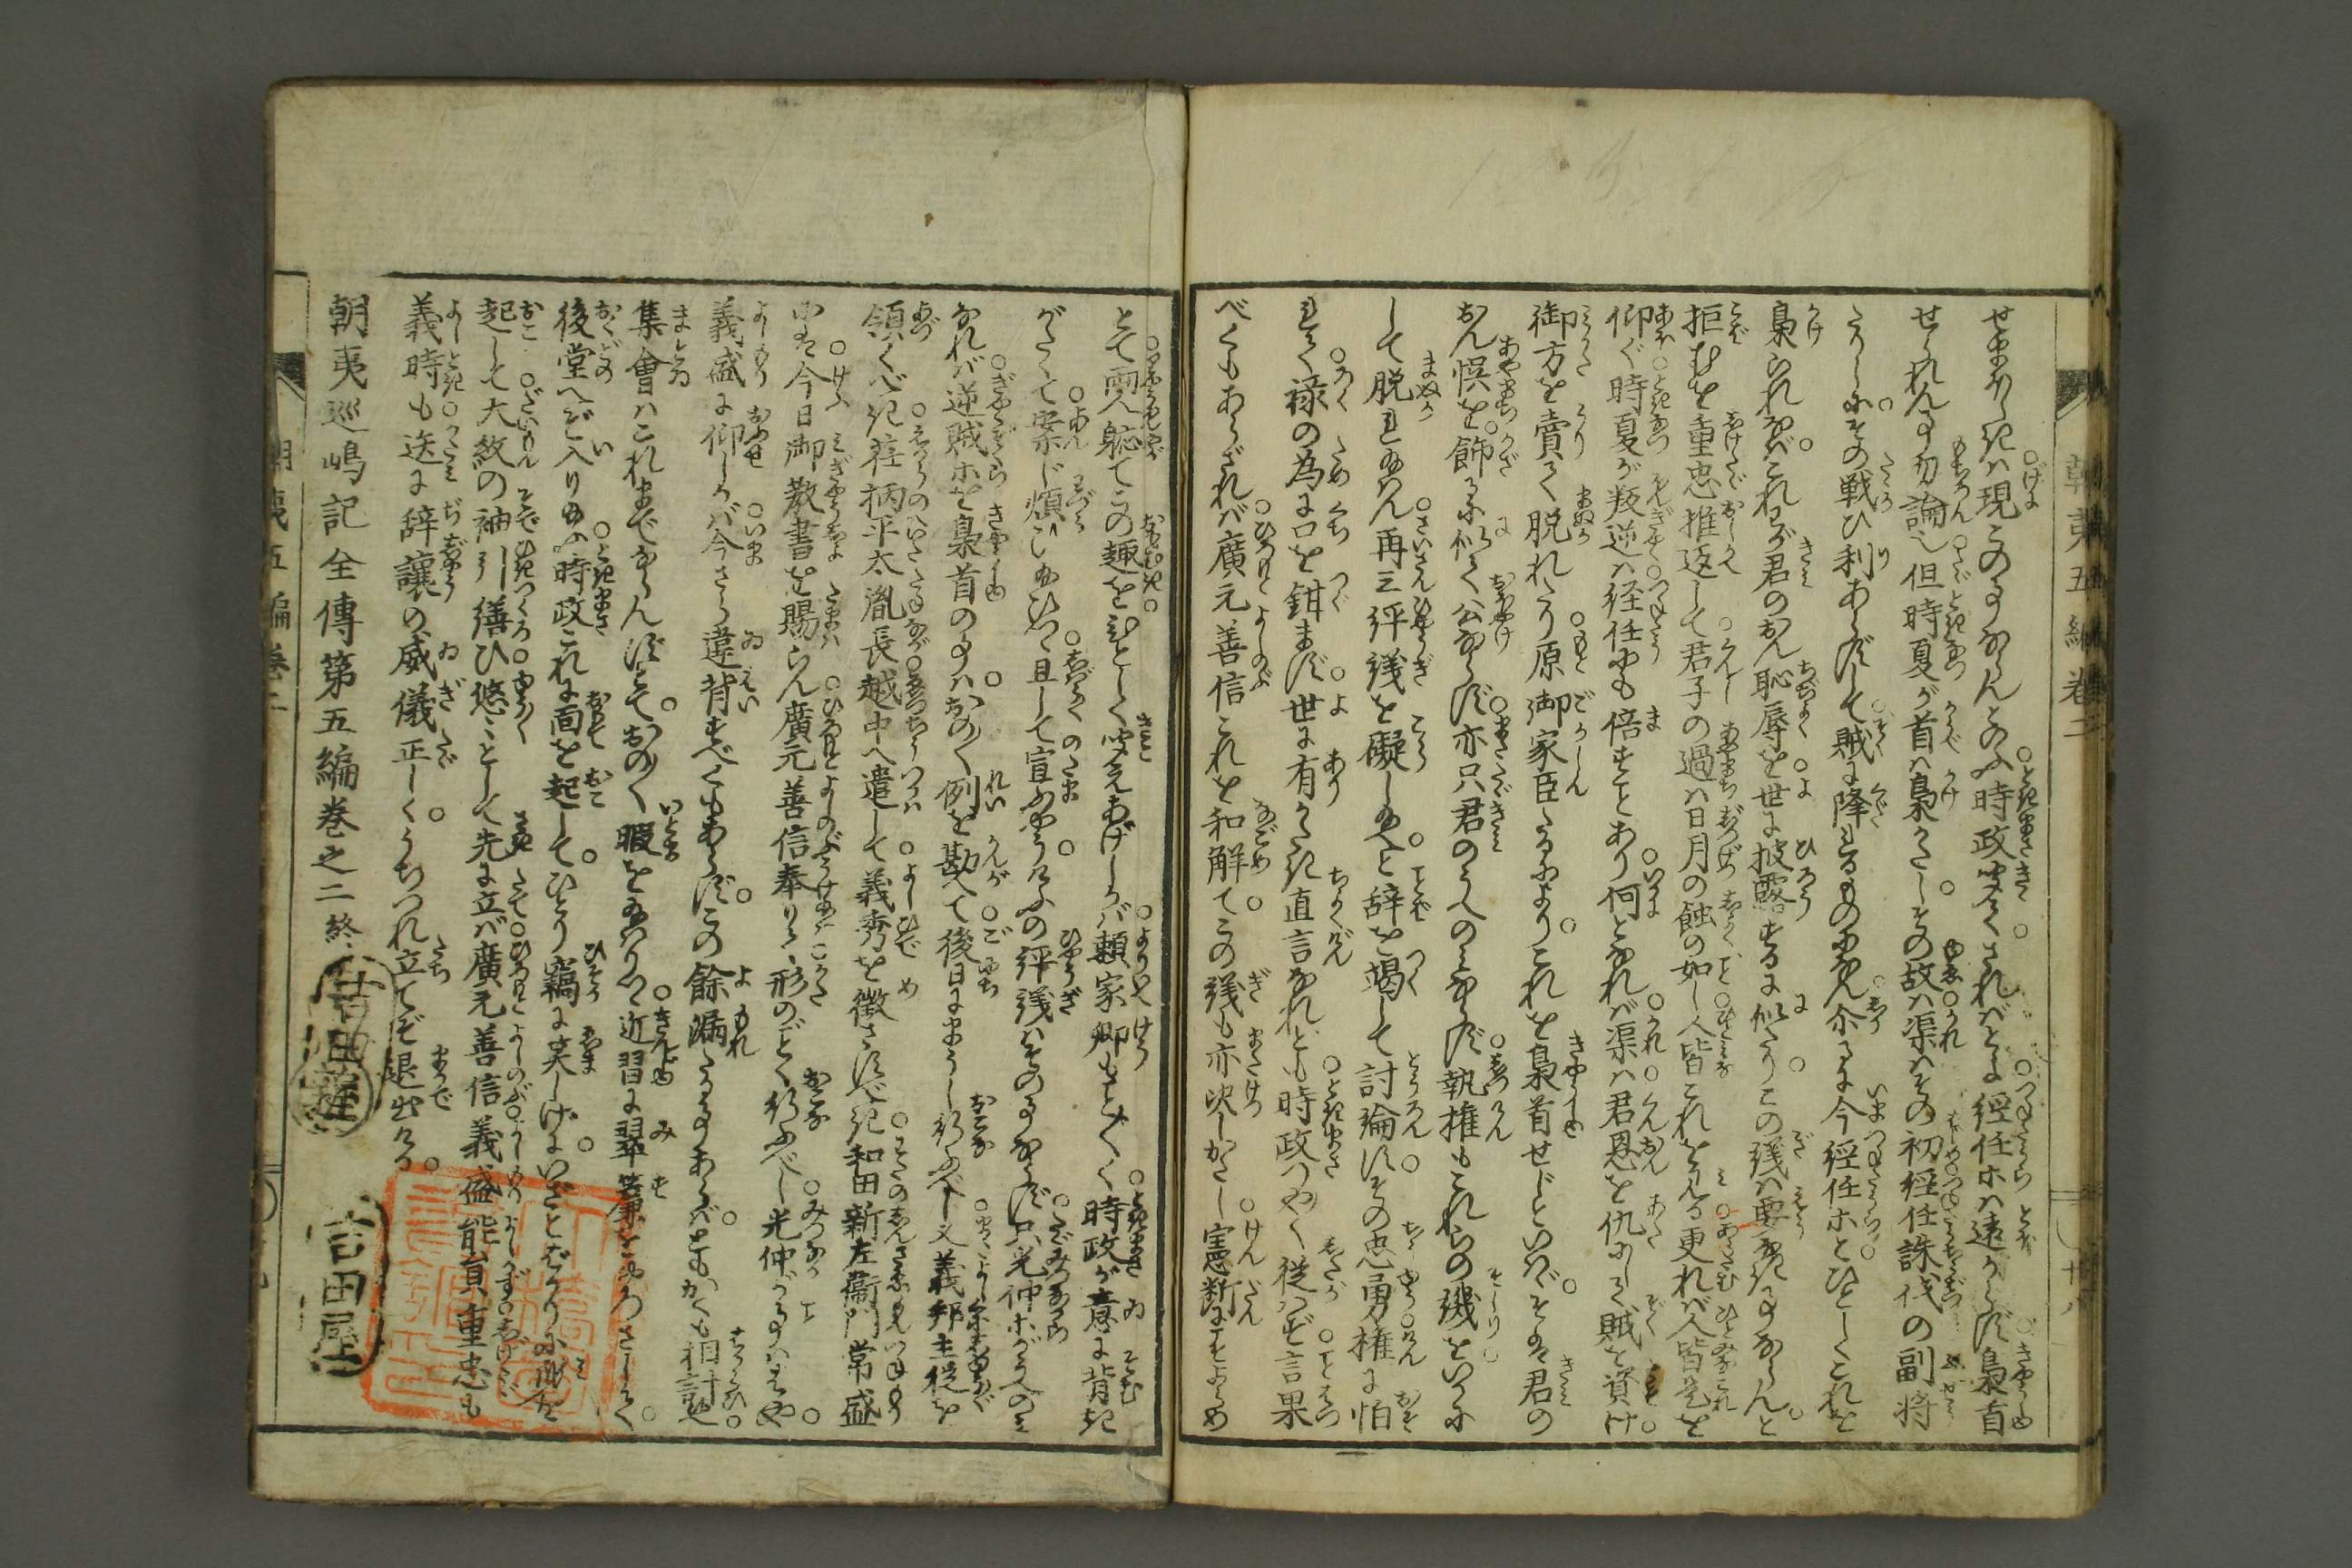 せまほしきは現このことならんとのふ時政聞てさればとよ経任ホは遠からず梟首
せられんこと勿論也但時夏が首は梟かたしその故は渠はその初経任誅伐の副将
たりしにその戦ひ利あらずして賊に降れるもの也かん尓るに今経任ホとひとしくこれを
梟られなばこれわが君のおん恥辱を世に披露するに似たりこの議は要なきことならんと
拒むを重忠推返して君子の過は日月の蝕の如し人皆これをみる更れば人皆是を
仰ぐ時夏が叛逆は経任にも倍すことあり何となれば渠は君恩を仇にして賊を資け
御方を賣て脱れたり原御家臣たるによりこれを梟首せじといはゞそは君の
おん悞を飾るに似て公ならず亦只君のうへのみならず執権もこれらの譏をいかに
して脱れ給はん再三評議を礙し給へと辞を竭して討論すその忠勇権に怕
れて禄の為に口を鉗まず世に有がたき直言なれども時政つや〳〵従はず言果
べくもあらざれば廣元善信これを和解てこの議も亦决しがたし憲断にこそよらめ
とて両人軈てこの趣をひとしく聞えあげしかば頼家卿もさま〴〵く時政が意に背き
がたくて案じ煩ひ給ひつゝ且して宣ふやうけふの評議はその事ならず只光仲ホがうへのみ
なれば逆賊ホを梟首の事はおの〳〵例を勘へて後日にまうし行ふべし又義邦主従を
領くべき荏柄平太胤長越中へ遣して義秀を徴さすべき和田新左衞門常盛
には今日御教書を賜らん廣元善信奉りて形のごとく行ふべし光仲がことははや
義盛に仰しかば今さら違背すべくもあらずこの餘漏たることあらばともかくも相計へ
集會はこれまでならんずとておの〳〵暇を給はりつ近習に翠簾をおろさして
後堂へぞ入り給ふ時政これに面を起してひとり竊に笑しげにいざとばかりに身を
起して大紋の袖引繕ひ悠々として先に立ば廣元善信義盛能員重忠も
義時も送に辞讓の威儀正しくうちつれ立てぞ退出ける
朝夷巡嶋記全傳第五編巻之二終
吉田屋
朝夷五編巻二
朝夷五編巻二
十八